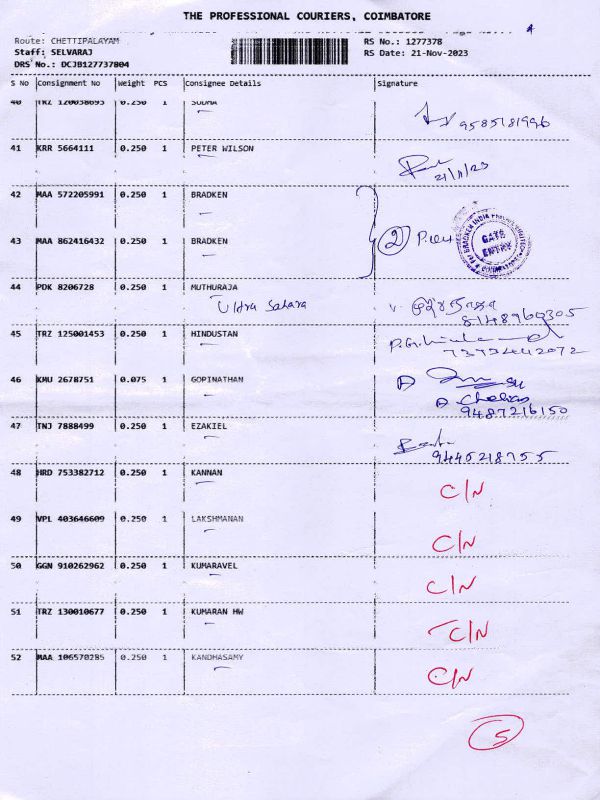 THE PROFESSIONAL COURIERS, COIMBATORE
Route: CHETTIPALAYAM
Staff: SELVARAJ
DRS No.: DCJB127737804
RS No.: 1277378
RS Date: 21-Nov-2023
S No Consignment No Weight PCS Consignee Details Signature
40 TRZ 120038693 0.250 1 SUDHA
9585181996
41 KRR 5664111 0.250 1 PETER WILSON
21/11/23
42 MAA 572205991 0.250 1 BRADKEN
43 MAA 862416432 0.250 1 BRADKEN
2
GATE ENTRY
44 PDK 8206728 0.250 1 MUTHURAJA
8148960305
45 TRZ 125001453 0.250 1 HINDUSTAN
7373442072
46 KMU 2678751 0.075 1 GOPINATHAN
9487216150
47 TNJ 7888499 0.250 1 EZAKIEL
9445218755
48 HRD 753382712 0.250 1 KANNAN C/N
49 VPL 403646609 0.250 1 LAKSHMANAN C/N
50 GGN 910262962 0.250 1 KUMARAVEL C/N
51 TRZ 130010677 0.250 1 KUMARAN HW C/N
52 MAA 106570285 0.250 1 KANDHASAMY C/N
5